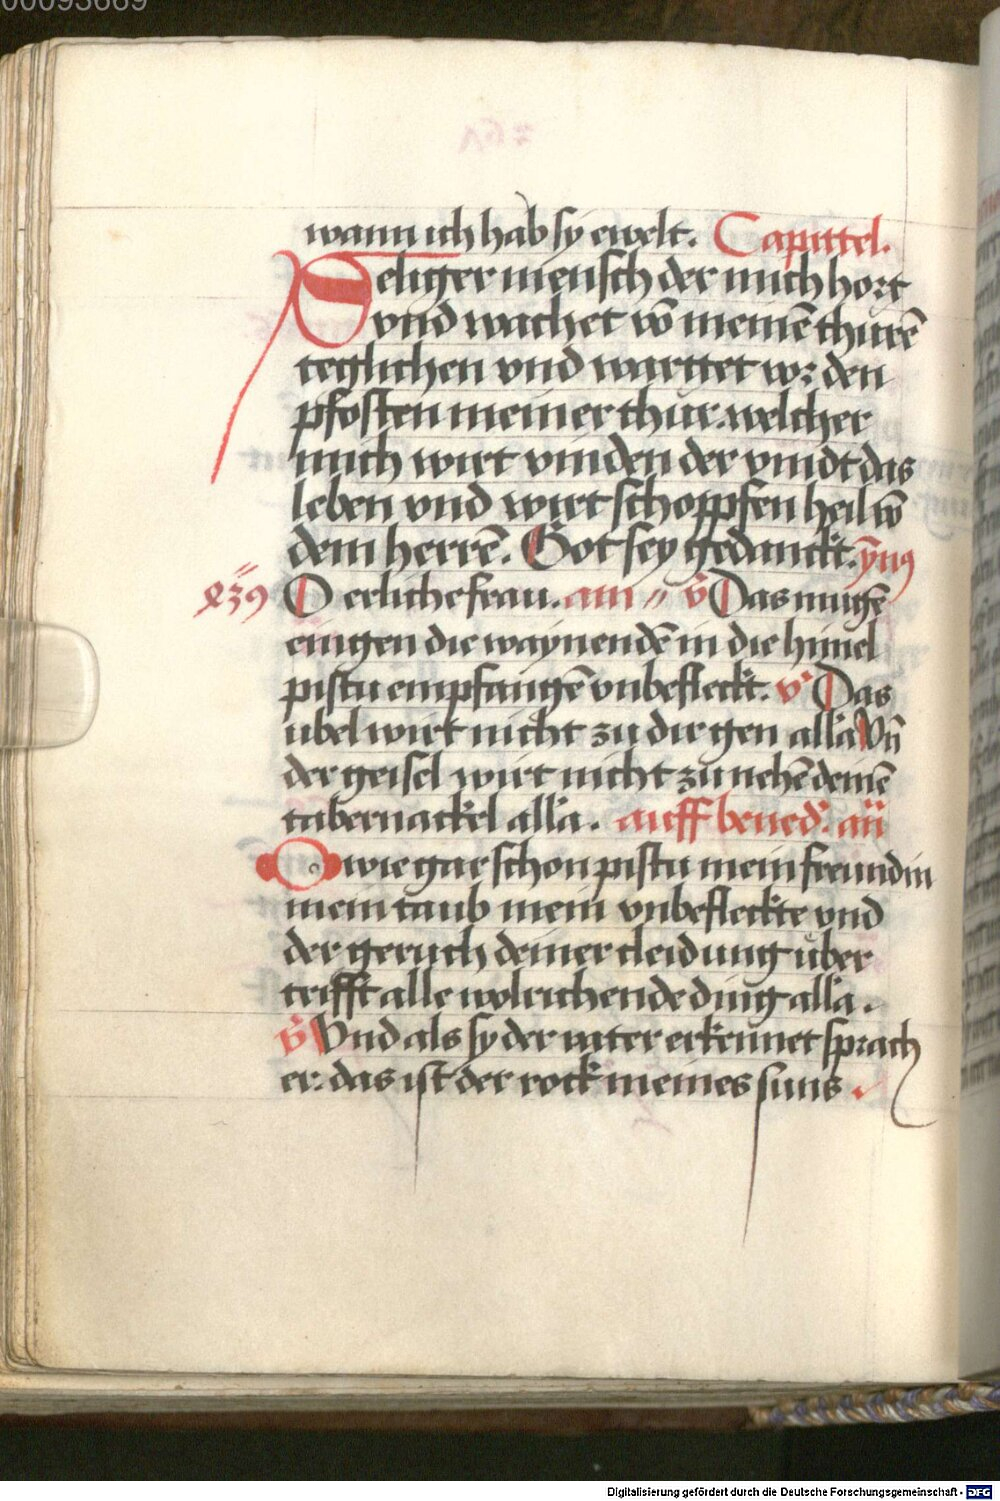 00093669
wann ich hab sy ewelt. Capittel.
Seliger mensch der mich hort
vnd wachet vō meinē thurē
teglichen vnd warttet vor den
pfosten meiner thur. welcher
mich wirt vinden der vindt das
leben vnd wirt schoppfen heil vō
dem herrē. Got sey gedanckt. ymꝰ
O erliche frau. am v̄ Das mugē
eingen die waynendē in die himel
pistu empfangē vnbefleckt. v Das
ubel wirt nicht zu dir gen alla Vn̄
der geisel wirt nicht zu nehē deinē
tabernackel alla. auff bened. an̄
O wie gar schon pistu mein freundin
mein taub mein vnbefleckte vnd
der geruch deiner cleidung über
trifft alle wolrichende ding alla.
v̄ Vnd als sy der vater erkennet sprach
er. das ist der rock meines suns
Digitalisierung gefördert durch die Deutsche Forschungsgemeinschaft - DFG